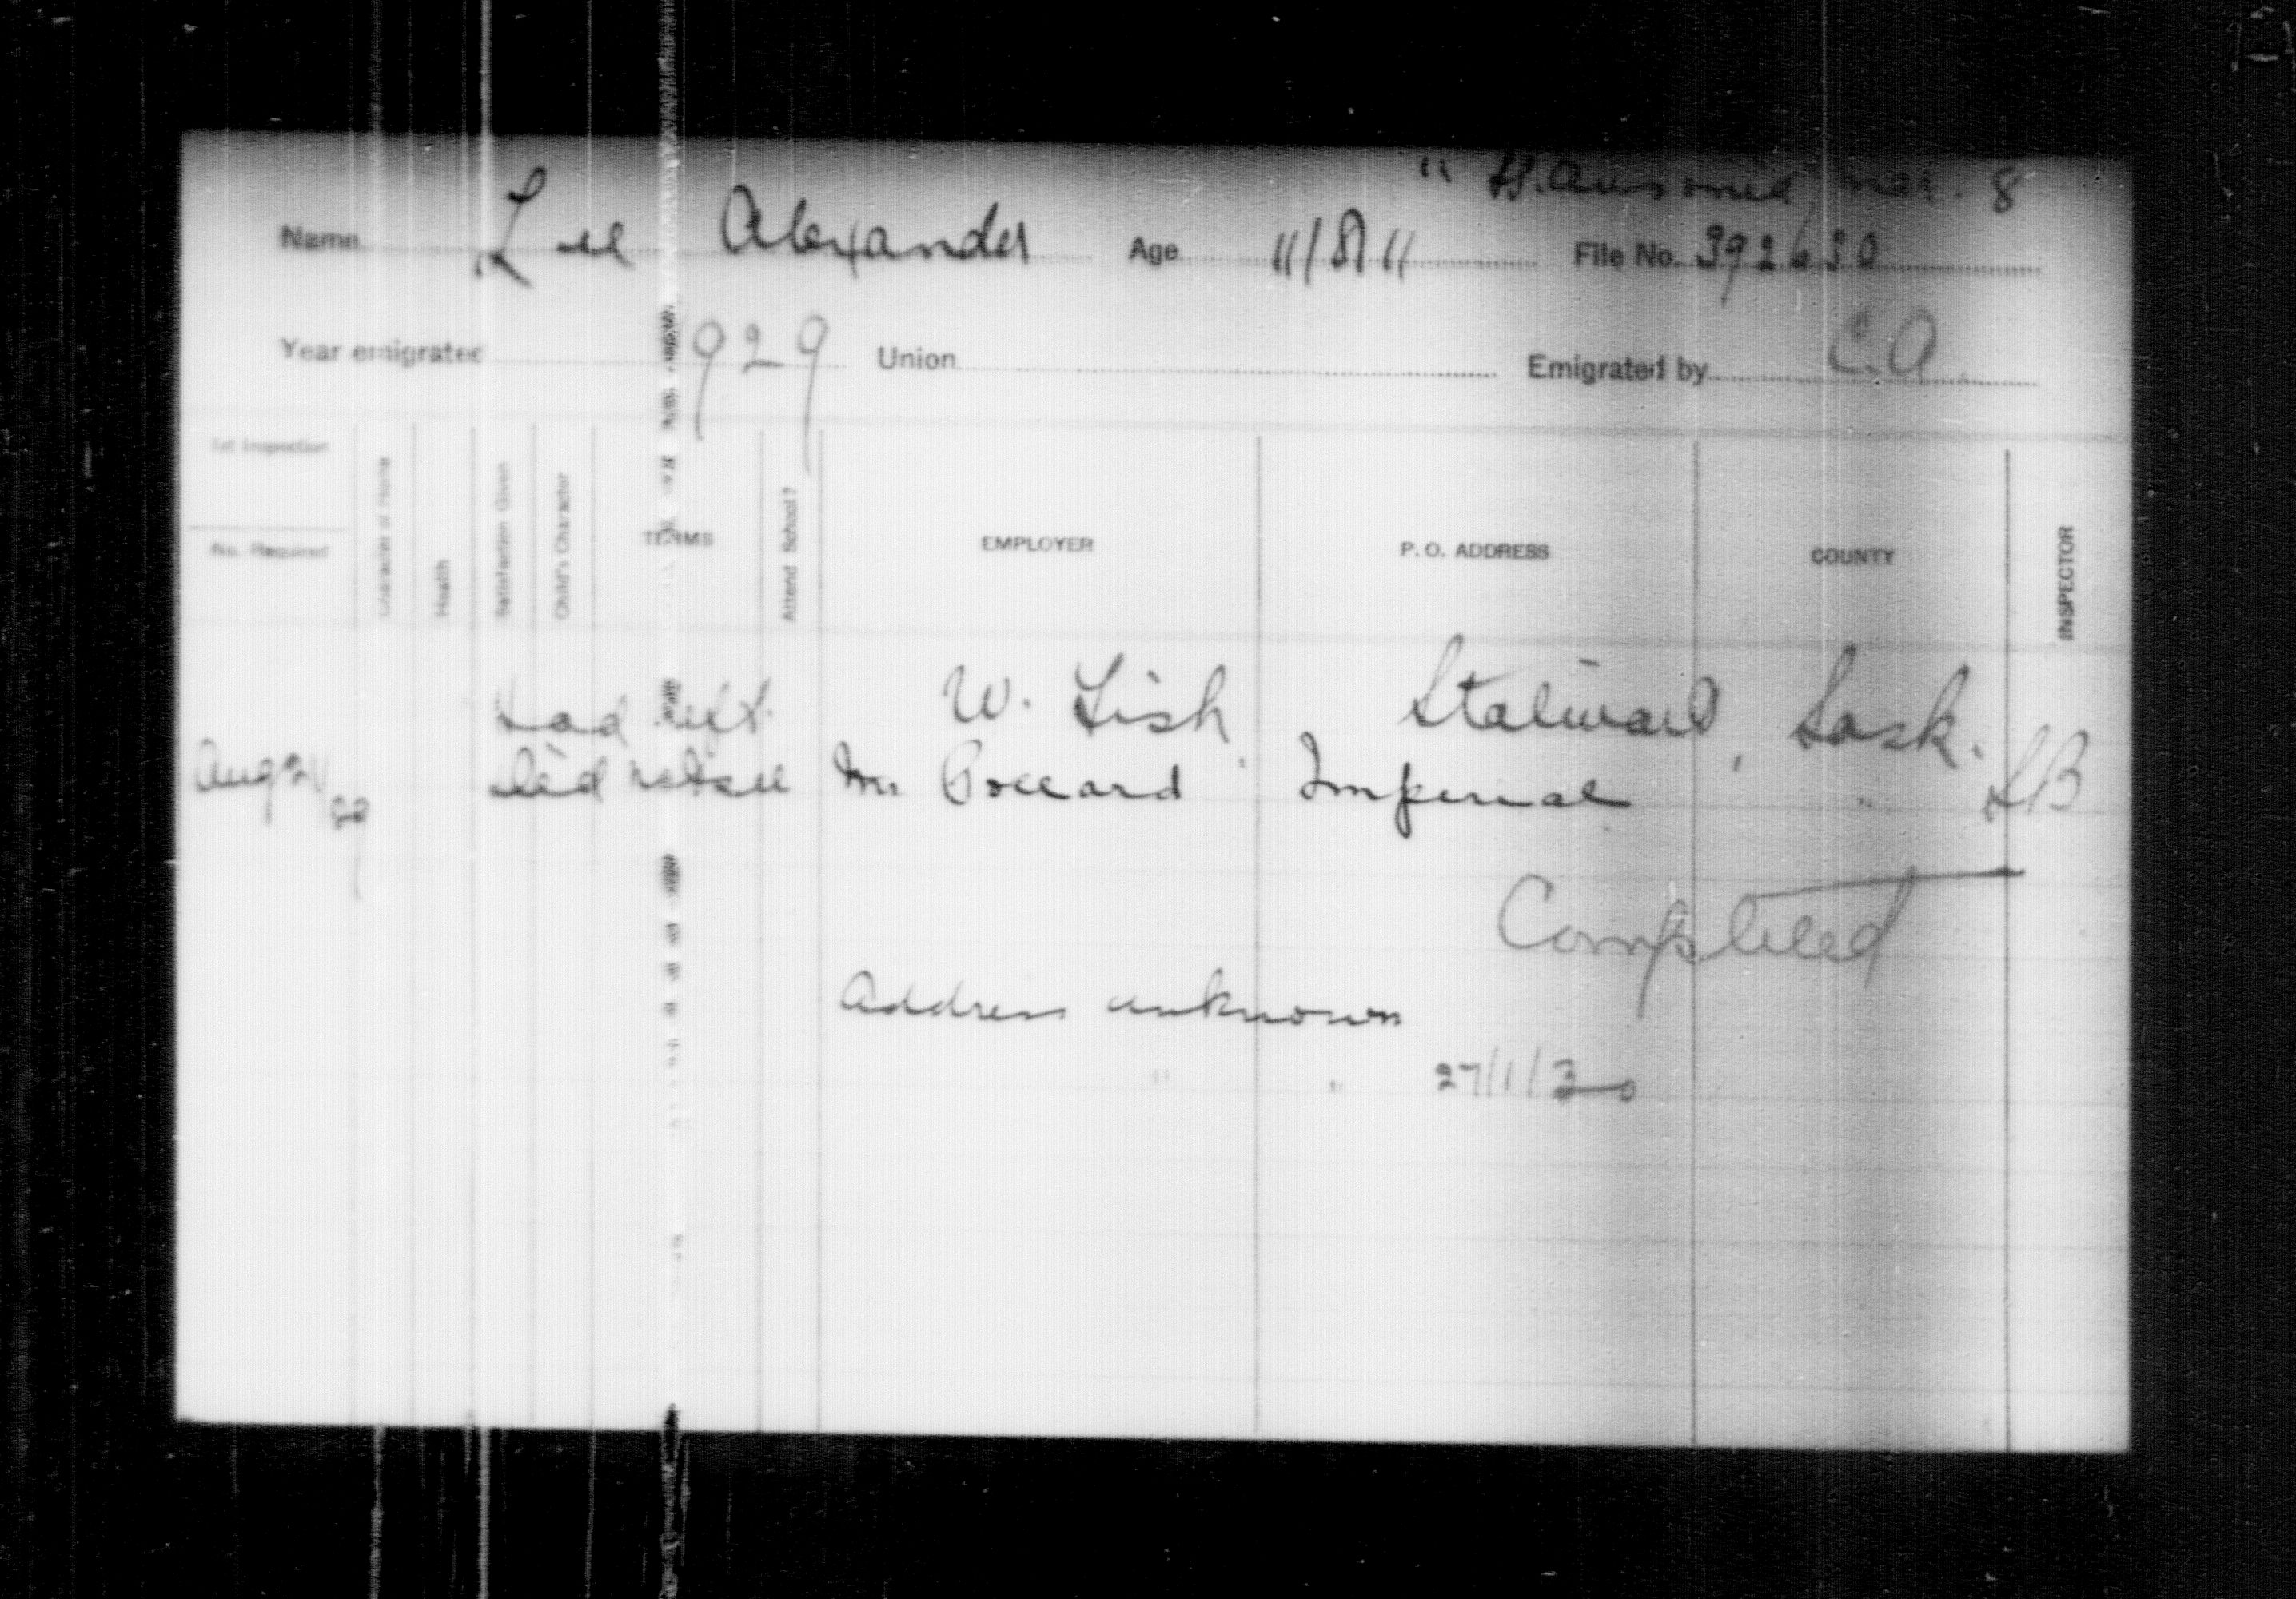 " B. Ausonia, Mar. 8
Name Lee Alexander Age 11/8/11 File No. 392630
Year emigrated 1929 Union Emigrated by C.A
1st Inspection
No. Required
Character of Home
Health
Satisfaction Given
Child's Character
TERMS
Attend School?
EMPLOYER
P. O. ADDRESS
COUNTY
INSPECTOR
Had left. W. Lish, Stalwart, Sask.
Aug 21 did not see Mr Pollard Imperial " LB
Completed
Address unknown
" " 27/1/30